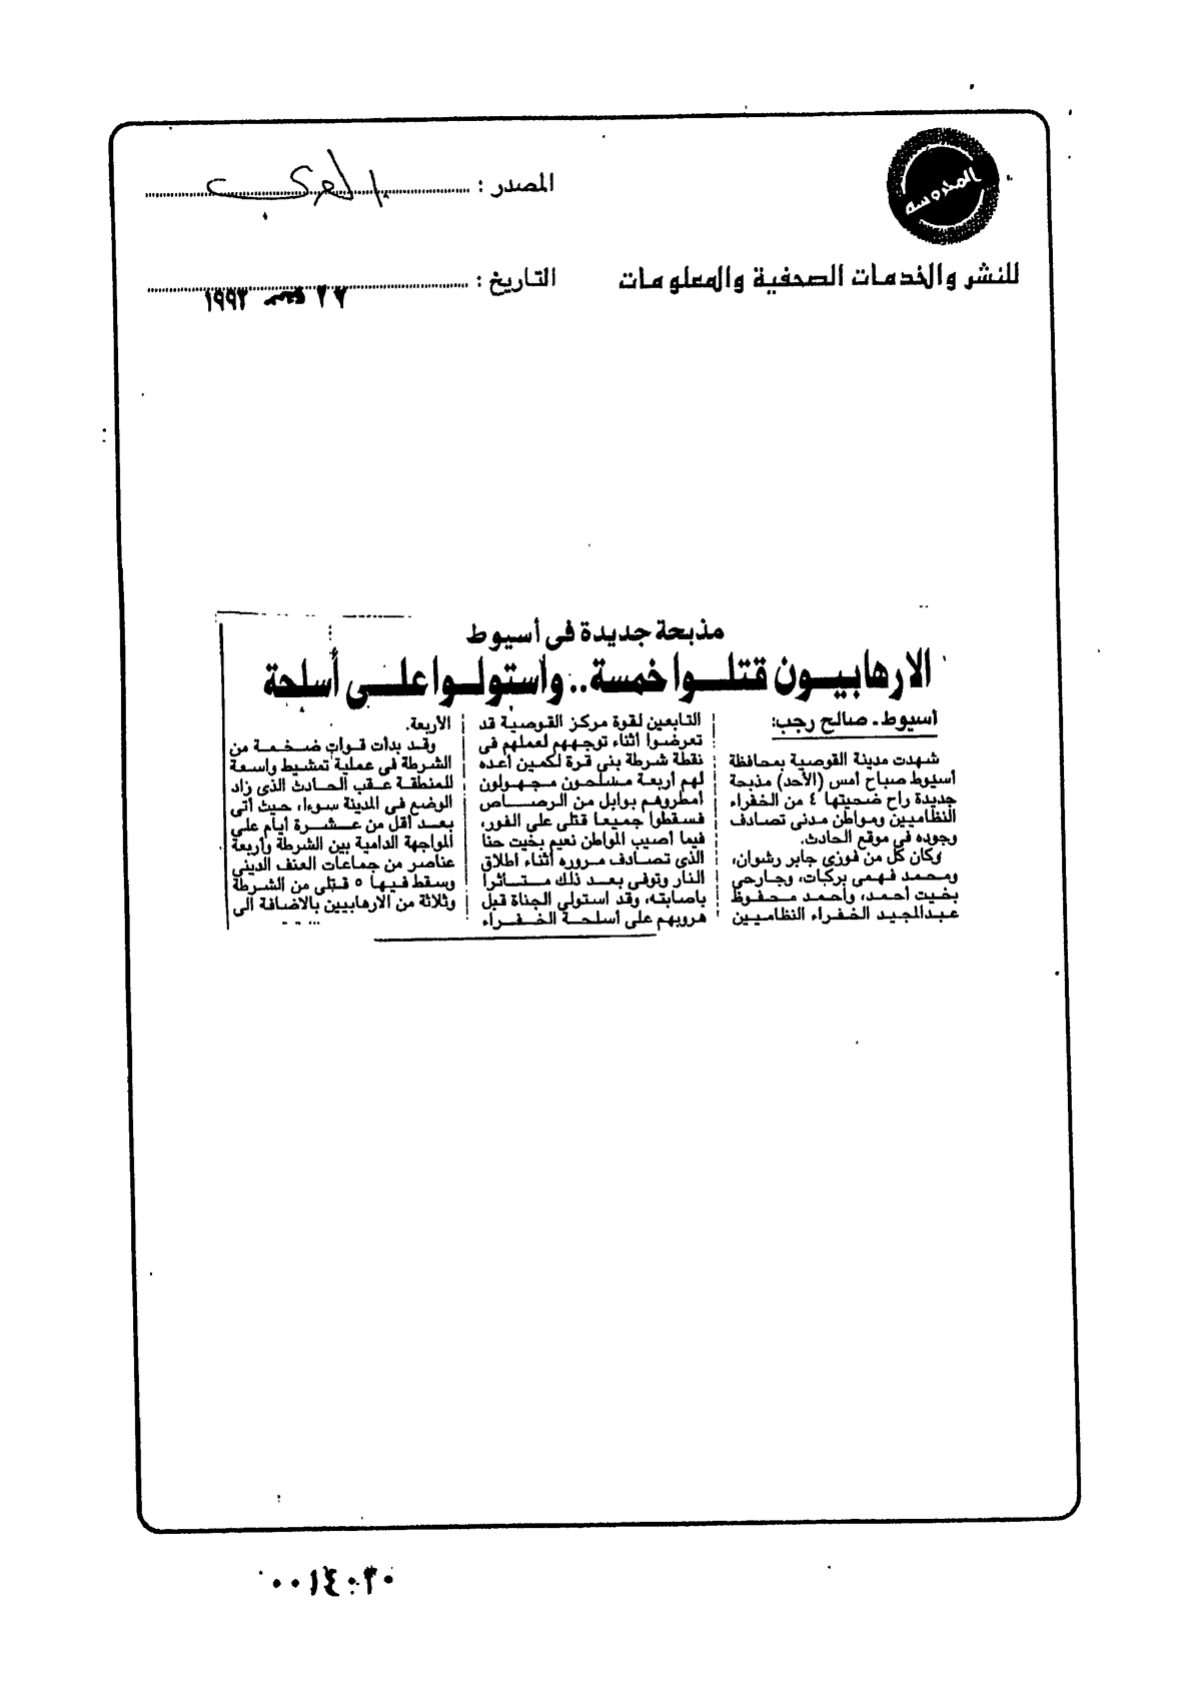 المحروسة
المصدر :
للنشر والخدمات الصحفية والمعلومات
التاريخ : ١٩٩٣
مذبحة جديدة فى أسيوط
الارهابيون قتلوا خمسة.. واستولوا على أسلحة
أسيوط - صالح رجب:
شهدت مدينة القوصية بمحافظة
أسيوط صباح أمس (الأحد) مذبحة
جديدة راح ضحيتها ٤ من الخفراء
النظاميين ومواطن مدنى تصادف
وجوده فى موقع الحادث.
وكان كل من فوزى جابر رشوان،
ومحمد فهمى بركات، وجارحى
بخيت أحمد، وأحمد محفوظ
عبدالمجيد الخفراء النظاميين
التابعين لقوة مركز القوصية قد
تعرضوا أثناء توجههم لعملهم فى
نقطة شرطة بنى قرة لكمين أعده
لهم أربعة مسلحون مجهولون
أمطروهم بوابل من الرصاص
فسقطوا جميعا قتلى على الفور،
فيما أصيب المواطن نعيم بخيت حنا
الذى تصادف مروره أثناء اطلاق
النار وتوفى بعد ذلك متأثرا
باصابته، وقد استولى الجناة قبل
هروبهم على أسلحة الخفراء
الأربعة.
وقد بدأت قوات ضخمة من
الشرطة فى عملية تمشيط واسعة
للمنطقة عقب الحادث الذى زاد
الوضع فى المدينة سوءا، حيث أتى
بعد أقل من عشرة أيام على
المواجهة الدامية بين الشرطة وأربعة
عناصر من جماعات العنف الدينى
وسقط فيها ٥ قتلى من الشرطة
وثلاثة من الارهابيين بالاضافة الى